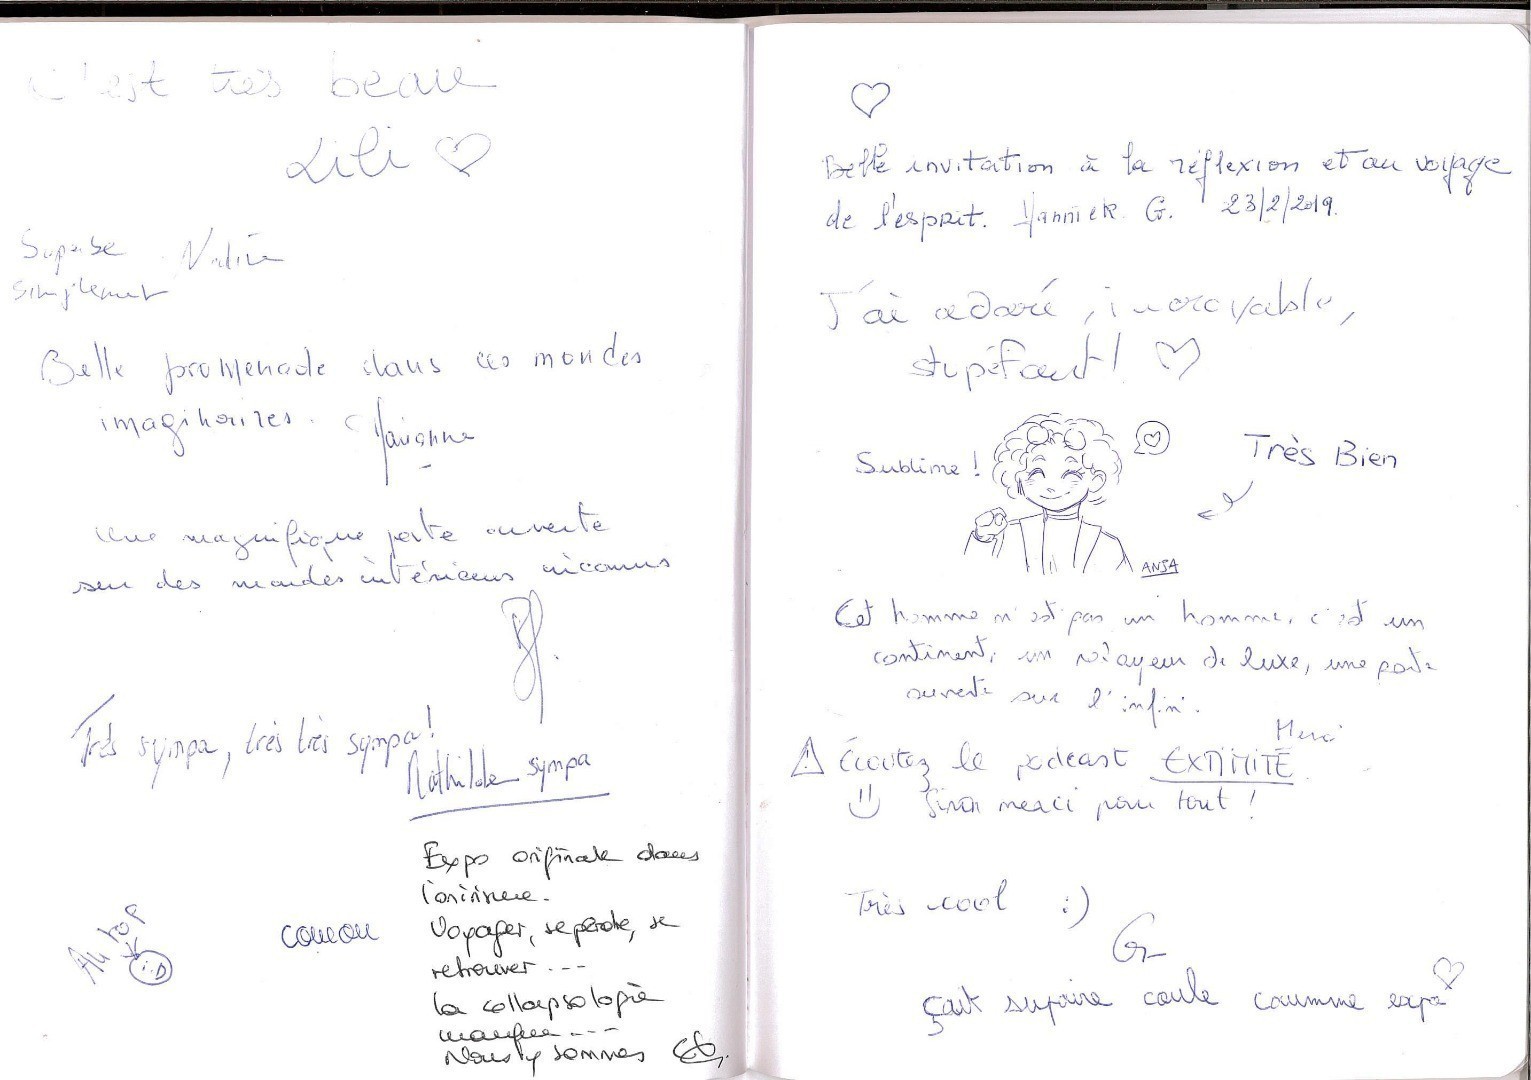 C'est très beau
Lili
Superbe
simplement
Belle promenade dans ces mondes
imaginaires.
Une magnifique porte ouverte
sur des mondes intérieurs inconnus
Très sympa, très très sympa!
Mathilde sympa
Au top
coucou
Expo originale dans
Voyager, se perdre, se
retrouver ---
la collapsologie
manque ---
Nous y sommes
Belle invitation à la réflexion et au voyage
de l'esprit. Yannick G. 23/2/2019.
J'ai adoré, incroyable,
stupéfant!
Sublime !
Très Bien
ANSA
Cet homme n'est pas un homme, c'est un
continent, un voyageur de luxe, une porte
ouverte sur l'infini.
Merci
Écoutez le podcast EXTIMITÉ
Sinon merci pour tout !
Très cool :)
çait supaire coule coumme expo